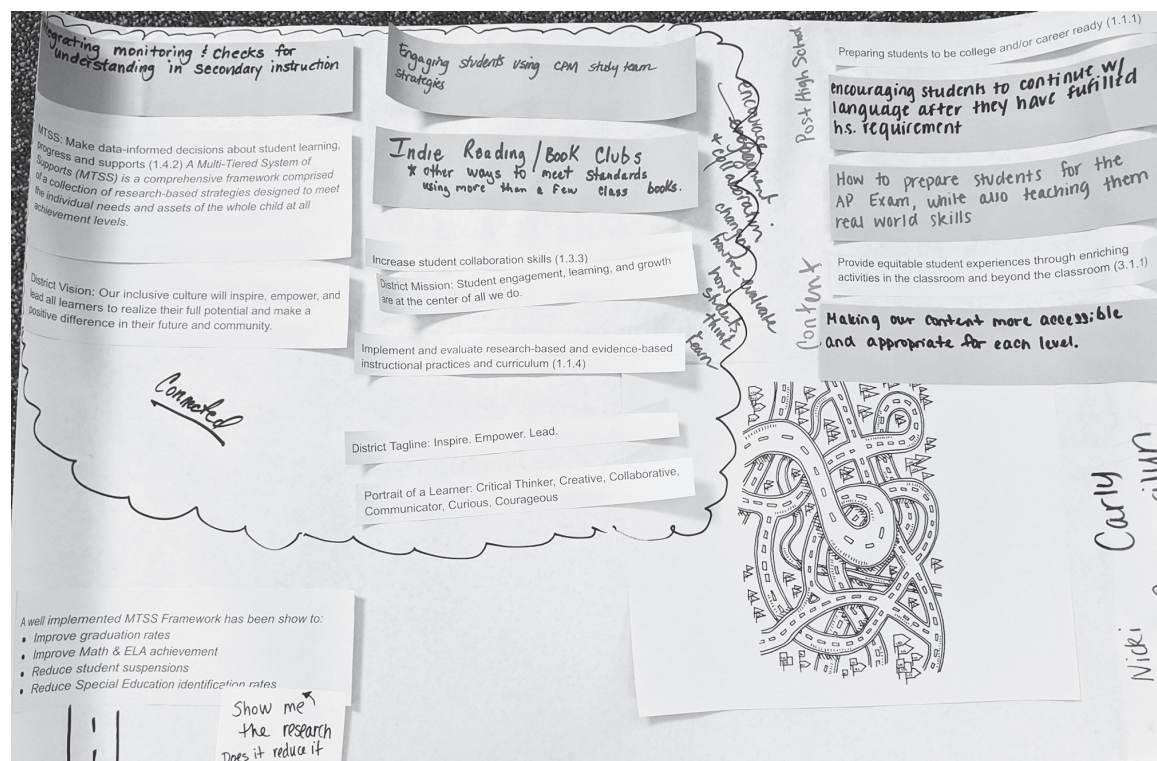 egrating monitoring & checks for
understanding in secondary instruction
MTSS: Make data-informed decisions about student learning,
progress and supports (1.4.2) A Multi-Tiered System of
Supports (MTSS) is a comprehensive framework comprised
of a collection of research-based strategies designed to meet
the individual needs and assets of the whole child at all
achievement levels.
District Vision: Our inclusive culture will inspire, empower, and
lead all learners to realize their full potential and make a
positive difference in their future and community.
Connected
Engaging students using CPM study team
strategies
Indie Reading/Book Clubs
* other ways to meet Standards
using more than a few class books.
Increase student collaboration skills (1.3.3)
District Mission: Student engagement, learning, and growth
are at the center of all we do.
Implement and evaluate research-based and evidence-based
instructional practices and curriculum (1.1.4)
District Tagline: Inspire. Empower. Lead.
Portrait of a Learner: Critical Thinker, Creative, Collaborative,
Communicator, Curious, Courageous
encourage
engagement
& collaboration
changing
how we evaluate
how
students
think
learn
Post High School
Preparing students to be college and/or career ready (1.1.1)
encouraging students to continue w/
language after they have fufilled
h.s. requirement
How to prepare students for the
AP Exam, while also teaching them
real world skills
Content
Provide equitable student experiences through enriching
activities in the classroom and beyond the classroom (3.1.1)
Making our content more accessible
and appropriate for each level.
Carly
Nicki
A well implemented MTSS Framework has been show to:
• Improve graduation rates
• Improve Math & ELA achievement
• Reduce student suspensions
• Reduce Special Education identification rates
Show me
the research
Does it reduce it